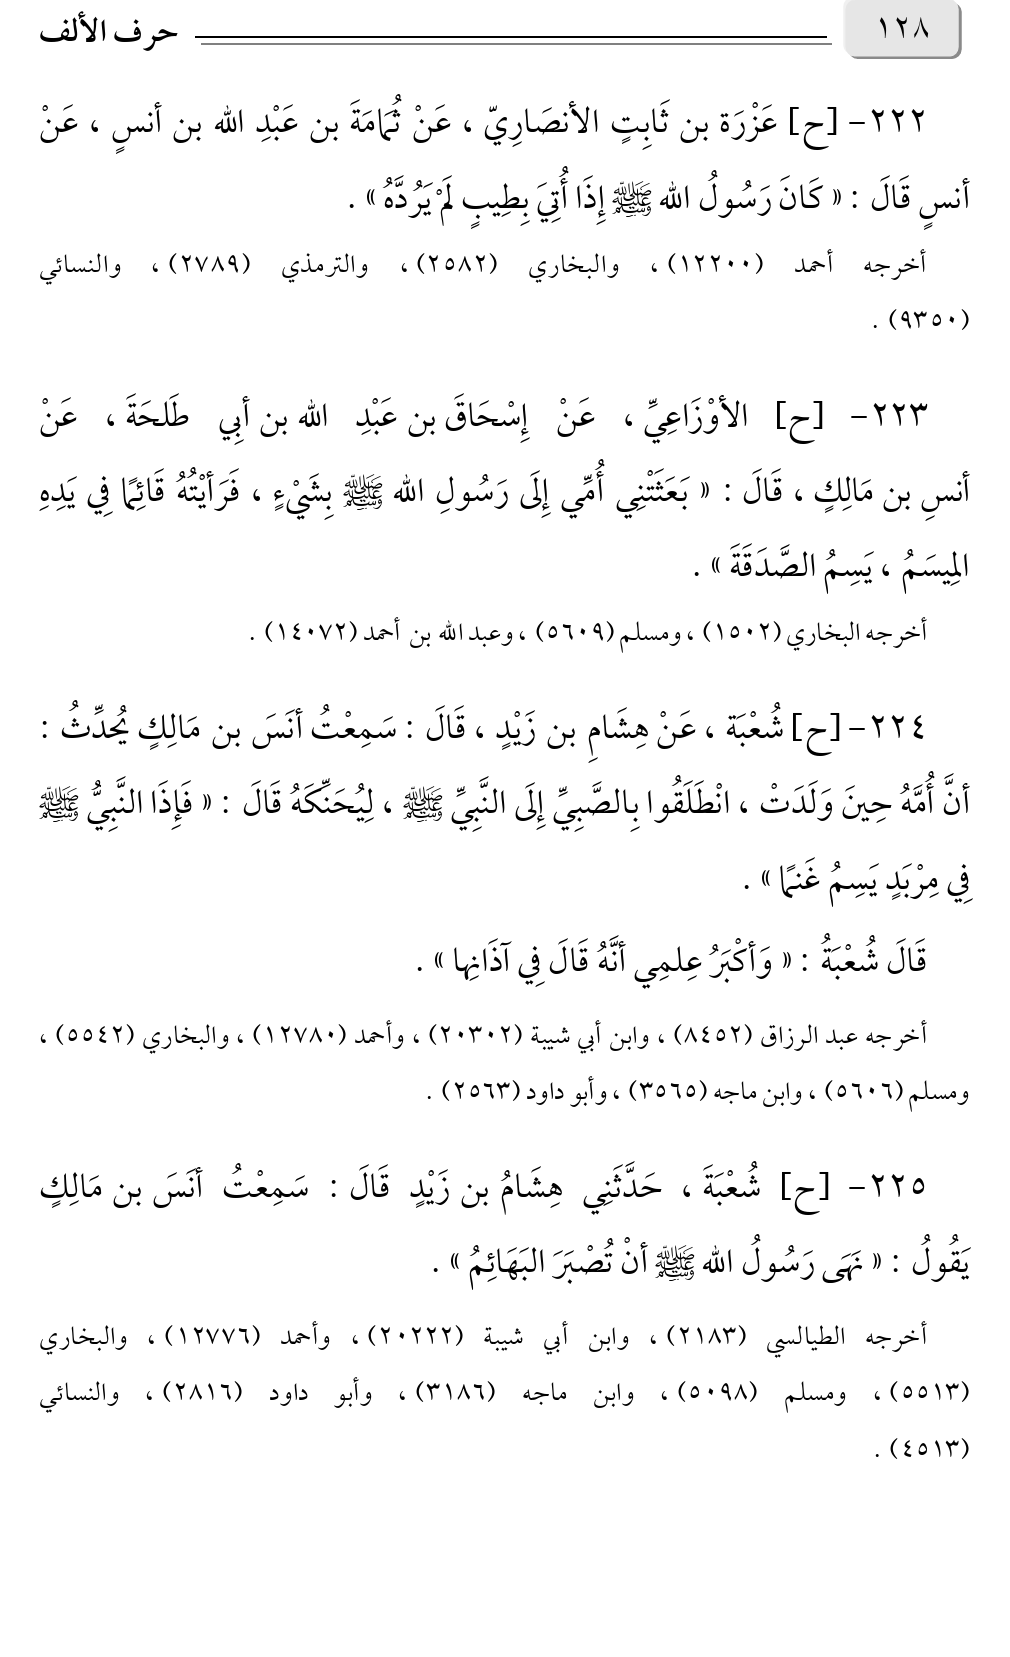 ١٢٨ حرف الألف
٢٢٢- [ح] عَزْرَة بن ثَابِتٍ الأنصَارِيّ ، عَنْ ثُمَامَةَ بن عَبْدِ الله بن أنسٍ ، عَنْ
أنسٍ قَالَ : « كَانَ رَسُولُ الله ﷺ إِذَا أُتِيَ بِطِيبٍ لَمْ يَرُدَّهُ » .
أخرجه أحمد (١٢٢٠٠) ، والبخاري (٢٥٨٢) ، والترمذي (٢٧٨٩) ، والنسائي
(٩٣٥٠) .
٢٢٣- [ح] الأوْزَاعِيِّ ، عَنْ إِسْحَاقَ بن عَبْدِ الله بن أبِي طَلحَةَ ، عَنْ
أنسِ بن مَالِكٍ ، قَالَ : « بَعَثَتْنِي أُمِّي إِلَى رَسُولِ الله ﷺ بِشَيْءٍ ، فَرَأيْتُهُ قَائِمًا فِي يَدِهِ
المِيسَمُ ، يَسِمُ الصَّدَقَةَ » .
أخرجه البخاري (١٥٠٢) ، ومسلم (٥٦٠٩) ، وعبد الله بن أحمد (١٤٠٧٢) .
٢٢٤- [ح] شُعْبَة ، عَنْ هِشَامِ بن زَيْدٍ ، قَالَ : سَمِعْتُ أنَسَ بن مَالِكٍ يُحدِّثُ :
أنَّ أُمَّهُ حِينَ وَلَدَتْ ، انْطَلَقُوا بِالصَّبِيِّ إِلَى النَّبِيِّ ﷺ ، لِيُحَنِّكَهُ قَالَ : « فَإِذَا النَّبِيُّ ﷺ
فِي مِرْبَدٍ يَسِمُ غَنمًا » .
قَالَ شُعْبَةُ : « وَأكْبَرُ عِلمِي أنَّهُ قَالَ فِي آذَانِها » .
أخرجه عبد الرزاق (٨٤٥٢) ، وابن أبي شيبة (٢٠٣٠٢) ، وأحمد (١٢٧٨٠) ، والبخاري (٥٥٤٢) ،
ومسلم (٥٦٠٦) ، وابن ماجه (٣٥٦٥) ، وأبو داود (٢٥٦٣) .
٢٢٥- [ح] شُعْبَةَ ، حَدَّثَنِي هِشَامُ بن زَيْدٍ قَالَ : سَمِعْتُ أنَسَ بن مَالِكٍ
يَقُولُ : « نَهَى رَسُولُ الله ﷺ أنْ تُصْبَرَ البَهَائِمُ » .
أخرجه الطيالسي (٢١٨٣) ، وابن أبي شيبة (٢٠٢٢٢) ، وأحمد (١٢٧٧٦) ، والبخاري
(٥٥١٣) ، ومسلم (٥٠٩٨) ، وابن ماجه (٣١٨٦) ، وأبو داود (٢٨١٦) ، والنسائي
(٤٥١٣) .